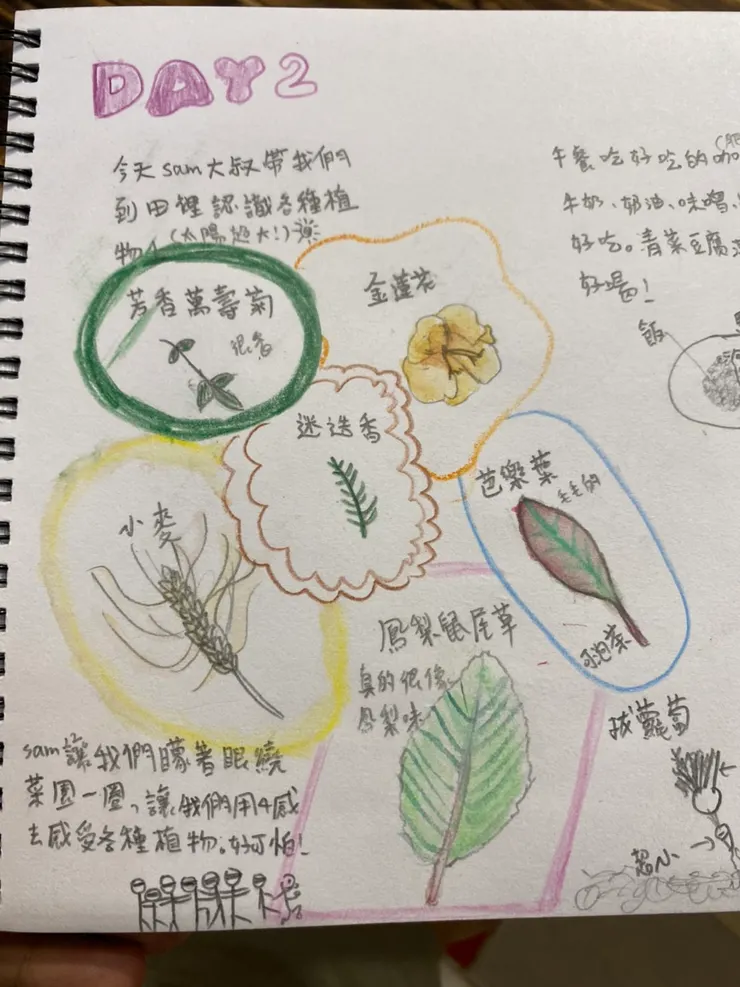 DAY2
今天sam大叔帶我們
到田裡認識各種植
物。(太陽超大!)
芳香萬壽菊
很香
金蓮花
迷迭香
芭樂葉
毛毛的
可泡茶
小麥
鳳梨鼠尾草
真的很像
鳳梨味
sam讓我們矇著眼繞
菜園一圈,讓我們用4感
去感受各種植物。好可怕!
午餐吃好吃的咖
牛奶、奶油、味噌、
好吃。青菜豆腐
好喝!
飯
拔蘿蔔
超小